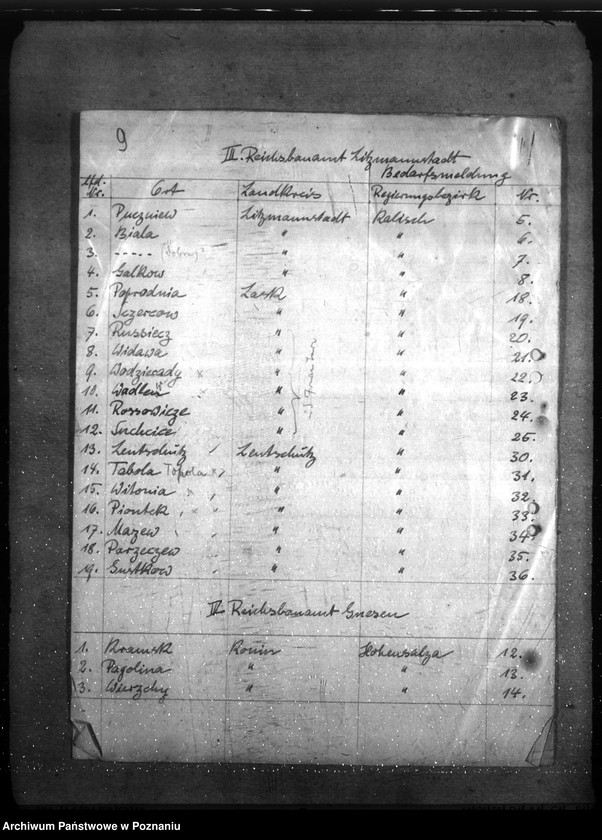 9
III. Reichsbauamt Litzmannstadt
Bedarfsmeldung
Lfd. Nr. Ort Landkreis Regierungsbezirk Nr.
1. Puczniew Litzmannstadt Kalisch 5.
2. Biala " " 6.
3. ----- " " 7.
4. Galkow " " 8.
5. Poprodnia Lask " 18.
6. Sczercow " " 19.
7. Russiecz " " 20.
8. Widawa " " 21.
9. Wodzierady x " " 22.
10. Wadlew " " 23.
11. Rossowicze " " 24.
12. Suchcice " " 25.
13. Lentschütz Lentschütz " 30.
14. Tabola Topola x " " 31.
15. Witonia x " " 32.
16. Piontek x " " 33.
17. Mazew " " 34.
18. Parzeczew " " 35.
19. Gustkow " " 36.
IV. Reichsbauamt Gnesen
1. Kramsk Konin Hohensalza 12.
2. Pagolina " " 13.
3. Wierzchy " " 14.
Archiwum Państwowe w Poznaniu